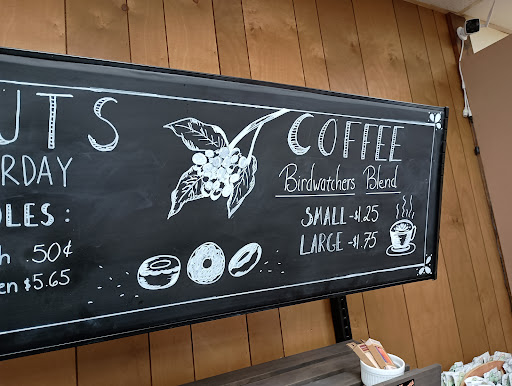 UTS
RDAY
LES:
h .50¢
en $5.65
COFFEE
Birdwatchers Blend
SMALL - $1.25
LARGE - $1.75